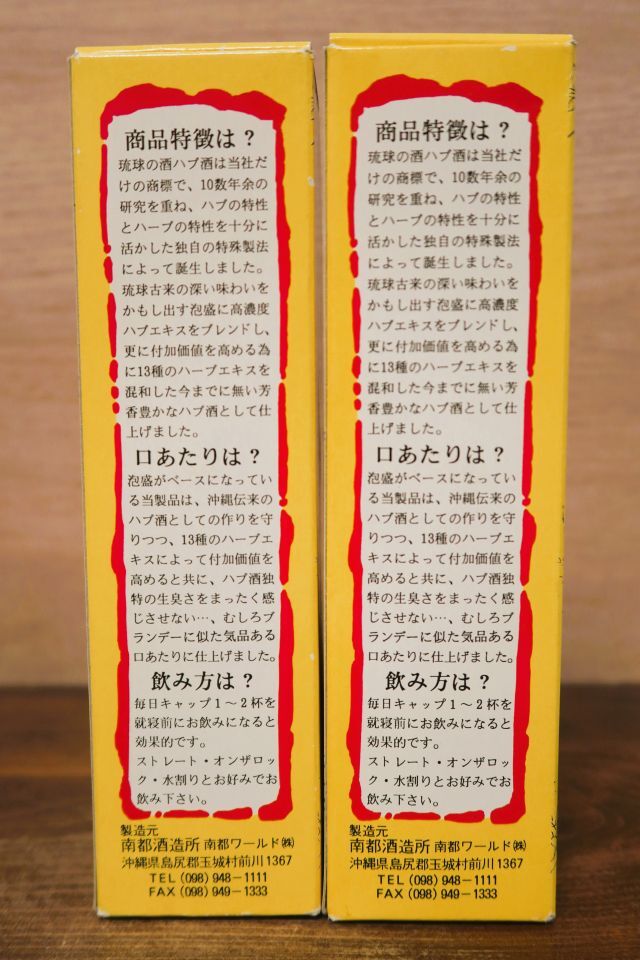 商品特徴は？
琉球の酒ハブ酒は当社だ
けの商標で、10数年余の
研究を重ね、ハブの特性
とハーブの特性を十分に
活かした独自の特殊製法
によって誕生しました。
琉球古来の深い味わいを
かもし出す泡盛に高濃度
ハブエキスをブレンドし、
更に付加価値を高める為
に13種のハーブエキスを
混和した今までに無い芳
香豊かなハブ酒として仕
上げました。
口あたりは？
泡盛がベースになってい
る当製品は、沖縄伝来の
ハブ酒としての作りを守
りつつ、13種のハーブエ
キスによって付加価値を
高めると共に、ハブ酒独
特の生臭さをまったく感
じさせない…、むしろブ
ランデーに似た気品ある
口あたりに仕上げました。
飲み方は？
毎日キャップ1～2杯を
就寝前にお飲みになると
効果的です。
ストレート・オンザロッ
ク・水割りとお好みでお
飲み下さい。
製造元
南都酒造所 南都ワールド㈱
沖縄県島尻郡玉城村前川1367
TEL (098) 948－1111
FAX (098) 949－1333
商品特徴は？
琉球の酒ハブ酒は当社だ
けの商標で、10数年余の
研究を重ね、ハブの特性
とハーブの特性を十分に
活かした独自の特殊製法
によって誕生しました。
琉球古来の深い味わいを
かもし出す泡盛に高濃度
ハブエキスをブレンドし、
更に付加価値を高める為
に13種のハーブエキスを
混和した今までに無い芳
香豊かなハブ酒として仕
上げました。
口あたりは？
泡盛がベースになってい
る当製品は、沖縄伝来の
ハブ酒としての作りを守
りつつ、13種のハーブエ
キスによって付加価値を
高めると共に、ハブ酒独
特の生臭さをまったく感
じさせない…、むしろブ
ランデーに似た気品ある
口あたりに仕上げました。
飲み方は？
毎日キャップ1～2杯を
就寝前にお飲みになると
効果的です。
ストレート・オンザロッ
ク・水割りとお好みでお
飲み下さい。
製造元
南都酒造所 南都ワールド㈱
沖縄県島尻郡玉城村前川1367
TEL (098) 948－1111
FAX (098) 949－1333